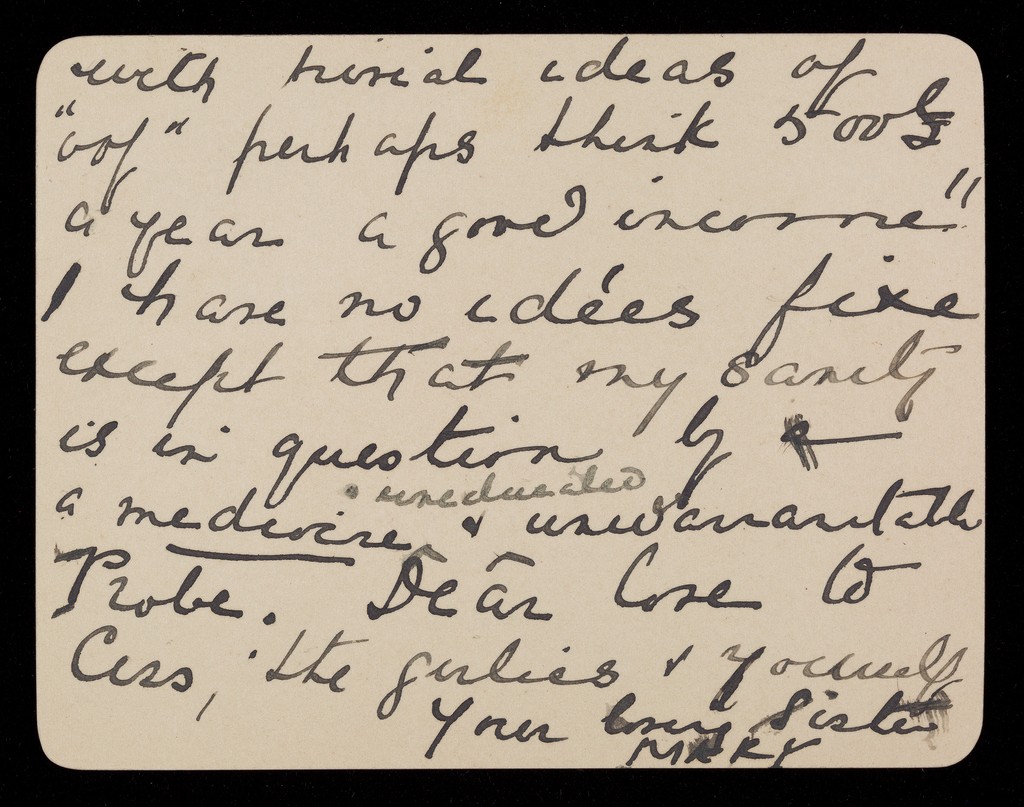 with trivial ideas of
"oof" perhaps think 500£
a year a good income"
I have no idées fixe
except that my sanity
is in question by
uneducated
a medicine & unwarrantable
Probe. Dear love to
Ciss, the girlies & yourself
Your loving Sister
MARY